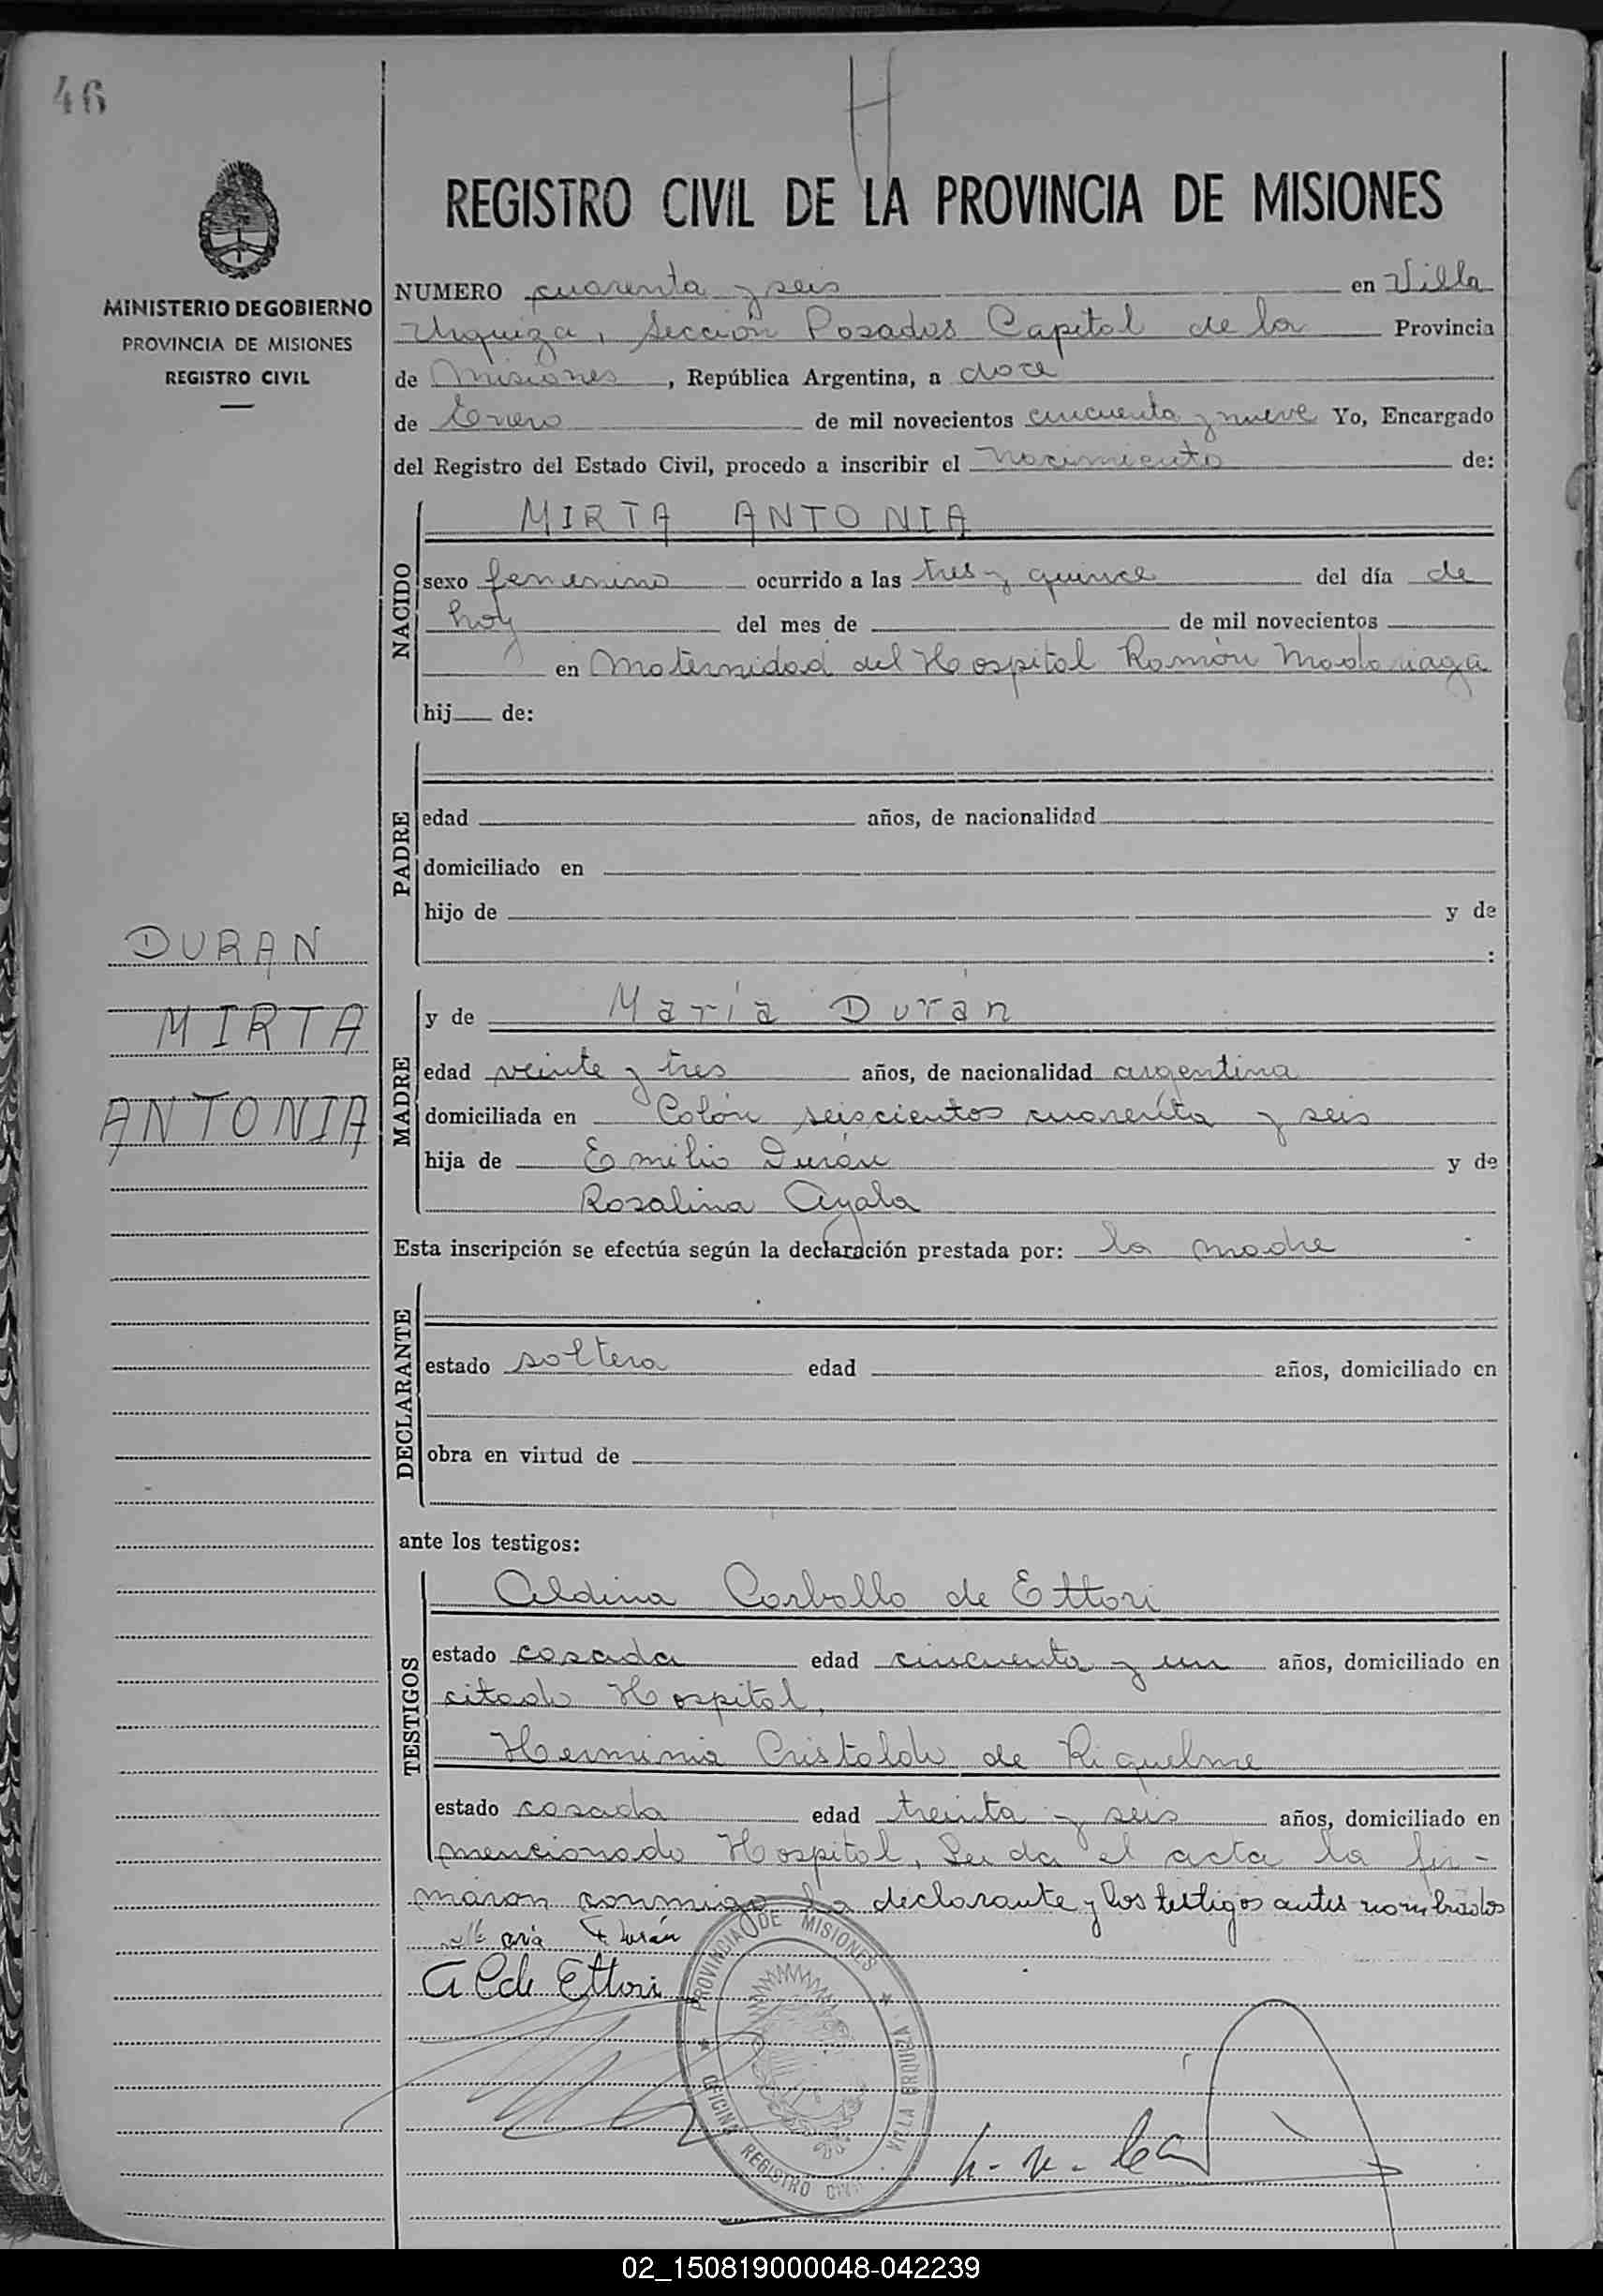 46
REGISTRO CIVIL DE LA PROVINCIA DE MISIONES
MINISTERIO DE GOBIERNO
PROVINCIA DE MISIONES
REGISTRO CIVIL
NUMERO cuarenta y seis en Villa
Urquiza, Sección Posadas Capital de la Provincia
de Misiones, República Argentina, a doce
de Enero de mil novecientos cincuenta y nueve Yo, Encargado
del Registro del Estado Civil, procedo a inscribir el nacimiento de:
NACIDO
MIRTA ANTONIA
sexo femenino ocurrido a las tres y quince del día de
hoy del mes de de mil novecientos
en Maternidad del Hospital Ramón Madariaga
hij de:
PADRE
edad años, de nacionalidad
domiciliado en
hijo de y de
:
DURAN
MIRTA
ANTONIA
MADRE
y de María Durán
edad veinte y tres años, de nacionalidad argentina
domiciliada en Colón seiscientos cuarenta y seis
hija de Emilio Durán y de
Rosalina Ayala
Esta inscripción se efectúa según la declaración prestada por: la madre
DECLARANTE
estado soltera edad años, domiciliado en
obra en virtud de
ante los testigos:
TESTIGOS
Aldina Carballo de Ettori
estado casada edad cincuenta y un años, domiciliado en
citado Hospital,
Herminia Cristaldo de Riquelme
estado casada edad treinta y seis años, domiciliado en
mencionado Hospital, Leída el acta la fir-
maron conmigo la declarante y los testigos antes nombrados
Durán
A C de Ettori
PROVINCIA DE MISIONES
OFICINA REGISTRO CIVIL
VILLA URQUIZA
02_150819000048-042239